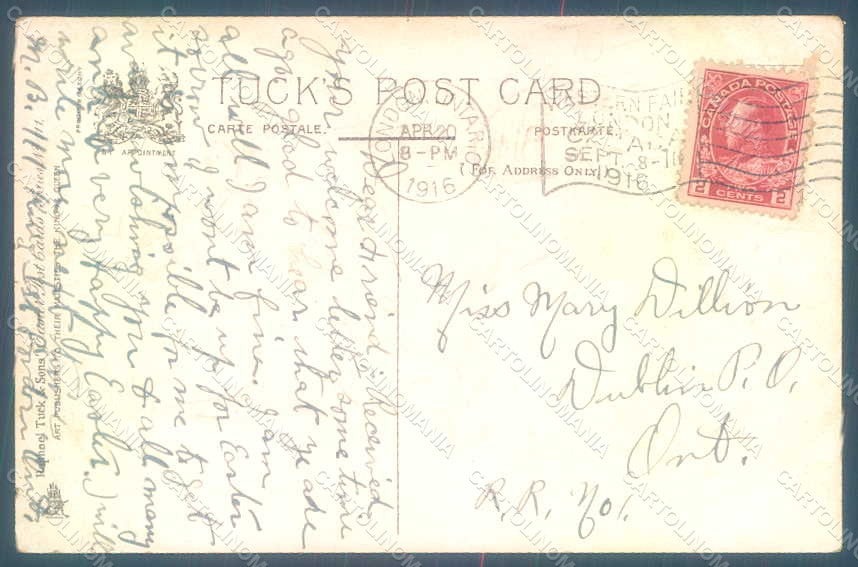 TUCK'S POST CARD
CARTE POSTALE.
POSTKARTE.
(FOR ADDRESS ONLY.)
BY APPOINTMENT
LONDON ONTARIO
APR 20
8-PM
1916
WESTERN FAIR
LONDON
SEPT. 8-16
1916
CANADA POSTAGE
2 CENTS 2
Miss Mary Dillion
Dublin P.O.
Ont.
R.R. No 1.
Dear Friend:- Received
your welcome letter some time
ago, glad to hear that you are
all well. I am fine. I am
sorry I wont be up for Easter
it is impossible for me to get
wishing you & all many
and a very happy Easter. I will
write
Raphael Tuck & Sons'
ART PUBLISHERS TO THEIR MAJESTIES THE KING & QUEEN
CARTOLINOMANIA